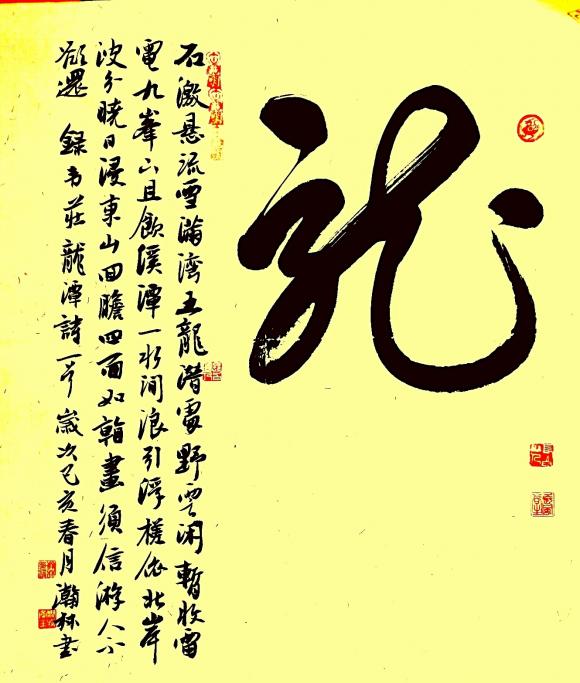 龍
石激懸流雪滿灣五龍潛處野雲闲暫收雷
電九峯下且飲溪潭一水间浪引浮槎依北岸
波分曉日浸東山回瞻四面如看畫須信游人不
欲還 錄韦莊龍潭詩一首 歲次己亥春月瀚林書